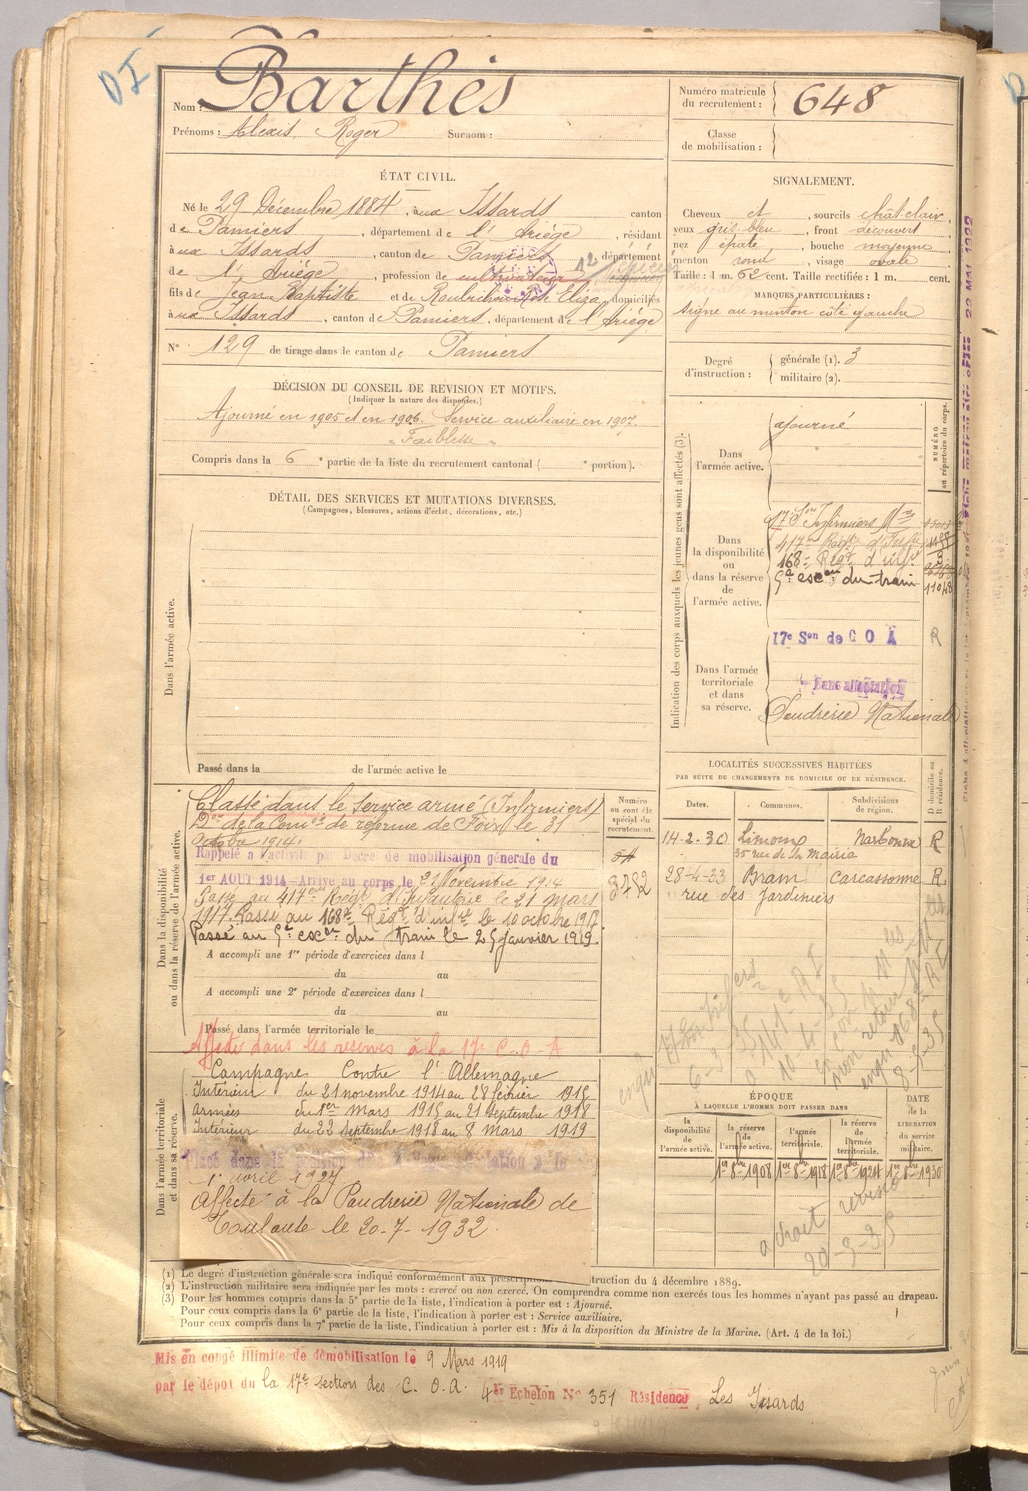 DI
Nom : Barthès
Prénoms : Alexis Roger Surnom :
Numéro matricule du recrutement : 648
Classe de mobilisation :
ÉTAT CIVIL.
Né le 29 Décembre 1884, aux Issards canton
de Pamiers, département de l'Ariége, résidant
aux Issards, canton de Pamiers, département
de l'Ariége, profession de cultivateur épicier
fils de Jean Baptiste et de Rose Eliza, domiciliés
aux Issards, canton de Pamiers, département de l'Ariége
N° 129 de tirage dans le canton de Pamiers
SIGNALEMENT.
Cheveux et, sourcils chât clair,
yeux gris bleu, front découvert
nez épaté, bouche moyenne
menton rond, visage ovale
Taille : 1 m. 62 cent. Taille rectifiée : 1 m. cent.
MARQUES PARTICULIÈRES :
signe au menton coté gauche
Degré d'instruction : générale (1). 3
militaire (2).
DÉCISION DU CONSEIL DE REVISION ET MOTIFS.
(Indiquer la nature des dispenses.)
Ajourné en 1905 et en 1906. Service auxiliaire en 1907.
"Faiblesse"
Compris dans la 6e partie de la liste du recrutement cantonal ( e portion).
DÉTAIL DES SERVICES ET MUTATIONS DIVERSES.
(Campagnes, blessures, actions d'éclat, décorations, etc.)
Dans l'armée active.
Passé dans la de l'armée active le
Indication des corps auxquels les jeunes gens sont affectés (3).
NUMÉRO au répertoire du corps.
Dans l'armée active.
ajourné
Dans la disponibilité ou dans la réserve de l'armée active.
17e Son Infirmiers Mres
417e Régt d'Infie
168e Régt d'infie
5e escon du train 11048
17e Son de C O A R
Dans l'armée territoriale et dans sa réserve.
Sans affectation
Poudrerie Nationale
LOCALITÉS SUCCESSIVES HABITÉES
PAR SUITE DE CHANGEMENTS DE DOMICILE OU DE RÉSIDENCE.
Dates. Communes. Subdivisions de région. D domicile ou R résidence.
14-2-30 Limoux Narbonne R
35 rue de la Mairie
28-4-33 Bram Carcassonne R
rue des Jardiniers
Dans la disponibilité ou dans la réserve de l'armée active.
Numéro au contrôle spécial du recrutement.
3782
Classé dans le service armé (Infirmiers)
Don de la Comon de réforme de Foix le 31
octobre 1914.
Rappelé à l'activité par Décret de mobilisation générale du
1er AOUT 1914 - Arrivé au corps le 21 Novembre 1914
Passé au 417eme Régt d'Infanterie le 21 mars
1917. Passé au 168e Régt d'infie le 10 octobre 1917.
Passé au 5e escon du train le 25 janvier 1919.
A accompli une 1re période d'exercices dans l
du au
A accompli une 2e période d'exercices dans l
du au
Passé dans l'armée territoriale le
Affecté dans les réserves à la 17e C.O.A
Dans l'armée territoriale et dans sa réserve.
Campagne Contre l'Allemagne
Intérieur du 21 novembre 1914 au 28 février 1915
Armées du 1er Mars 1915 au 21 Septembre 1918
Intérieur du 22 Septembre 1918 au 8 Mars 1919
1er avril 1927
Affecté à la Poudrerie Nationale de
Toulouse le 20-7-1932
ÉPOQUE
À LAQUELLE L'HOMME DOIT PASSER DANS
la disponibilité de l'armée active. la réserve de l'armée active. l'armée territoriale. la réserve de l'armée territoriale. DATE de la LIBÉRATION du service militaire.
1er 8bre 1908 1er 8bre 1918 1er 8bre 1924 1er 8bre 1930
a droit
20-5-35
(1) Le degré d'instruction générale sera indiqué conformément aux struction du 4 décembre 1889.
(2) L'instruction militaire sera indiquée par les mots : exercé ou non exercé. On comprendra comme non exercés tous les hommes n'ayant pas passé au drapeau.
(3) Pour les hommes compris dans la 5e partie de la liste, l'indication à porter est : Ajourné.
Pour ceux compris dans la 6e partie de la liste, l'indication à porter est : Service auxiliaire.
Pour ceux compris dans la 7e partie de la liste, l'indication à porter est : Mis à la disposition du Ministre de la Marine. (Art. 4 de la loi.)
Mis en congé illimité de démobilisation le 9 Mars 1919
par le dépot du la 17e section des C.O.A. Echelon N° 351 Résidence, Les Issards